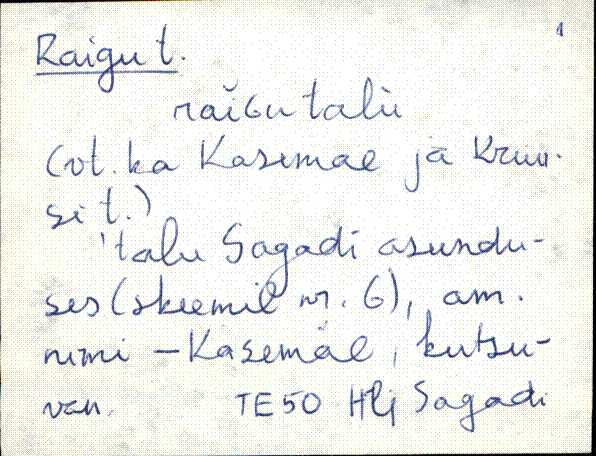 1
Raigu t.
raiGu talu
(vt. ka Kasemäe ja Kruu-
si t.)
'talu Sagadi asundu-
ses (skeemil nr. 6), am.
nimi – Kasemäe, kutsu-
van. TE50 Hlj Sagadi